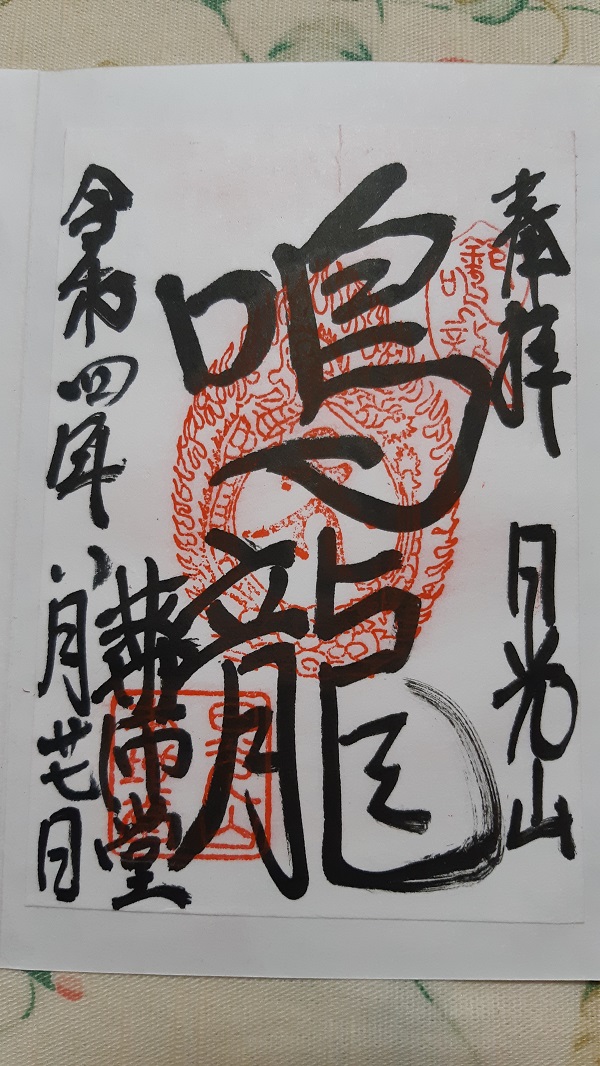 奉拝 日光山
鳴龍
薬師堂
令和四年八月廿七日